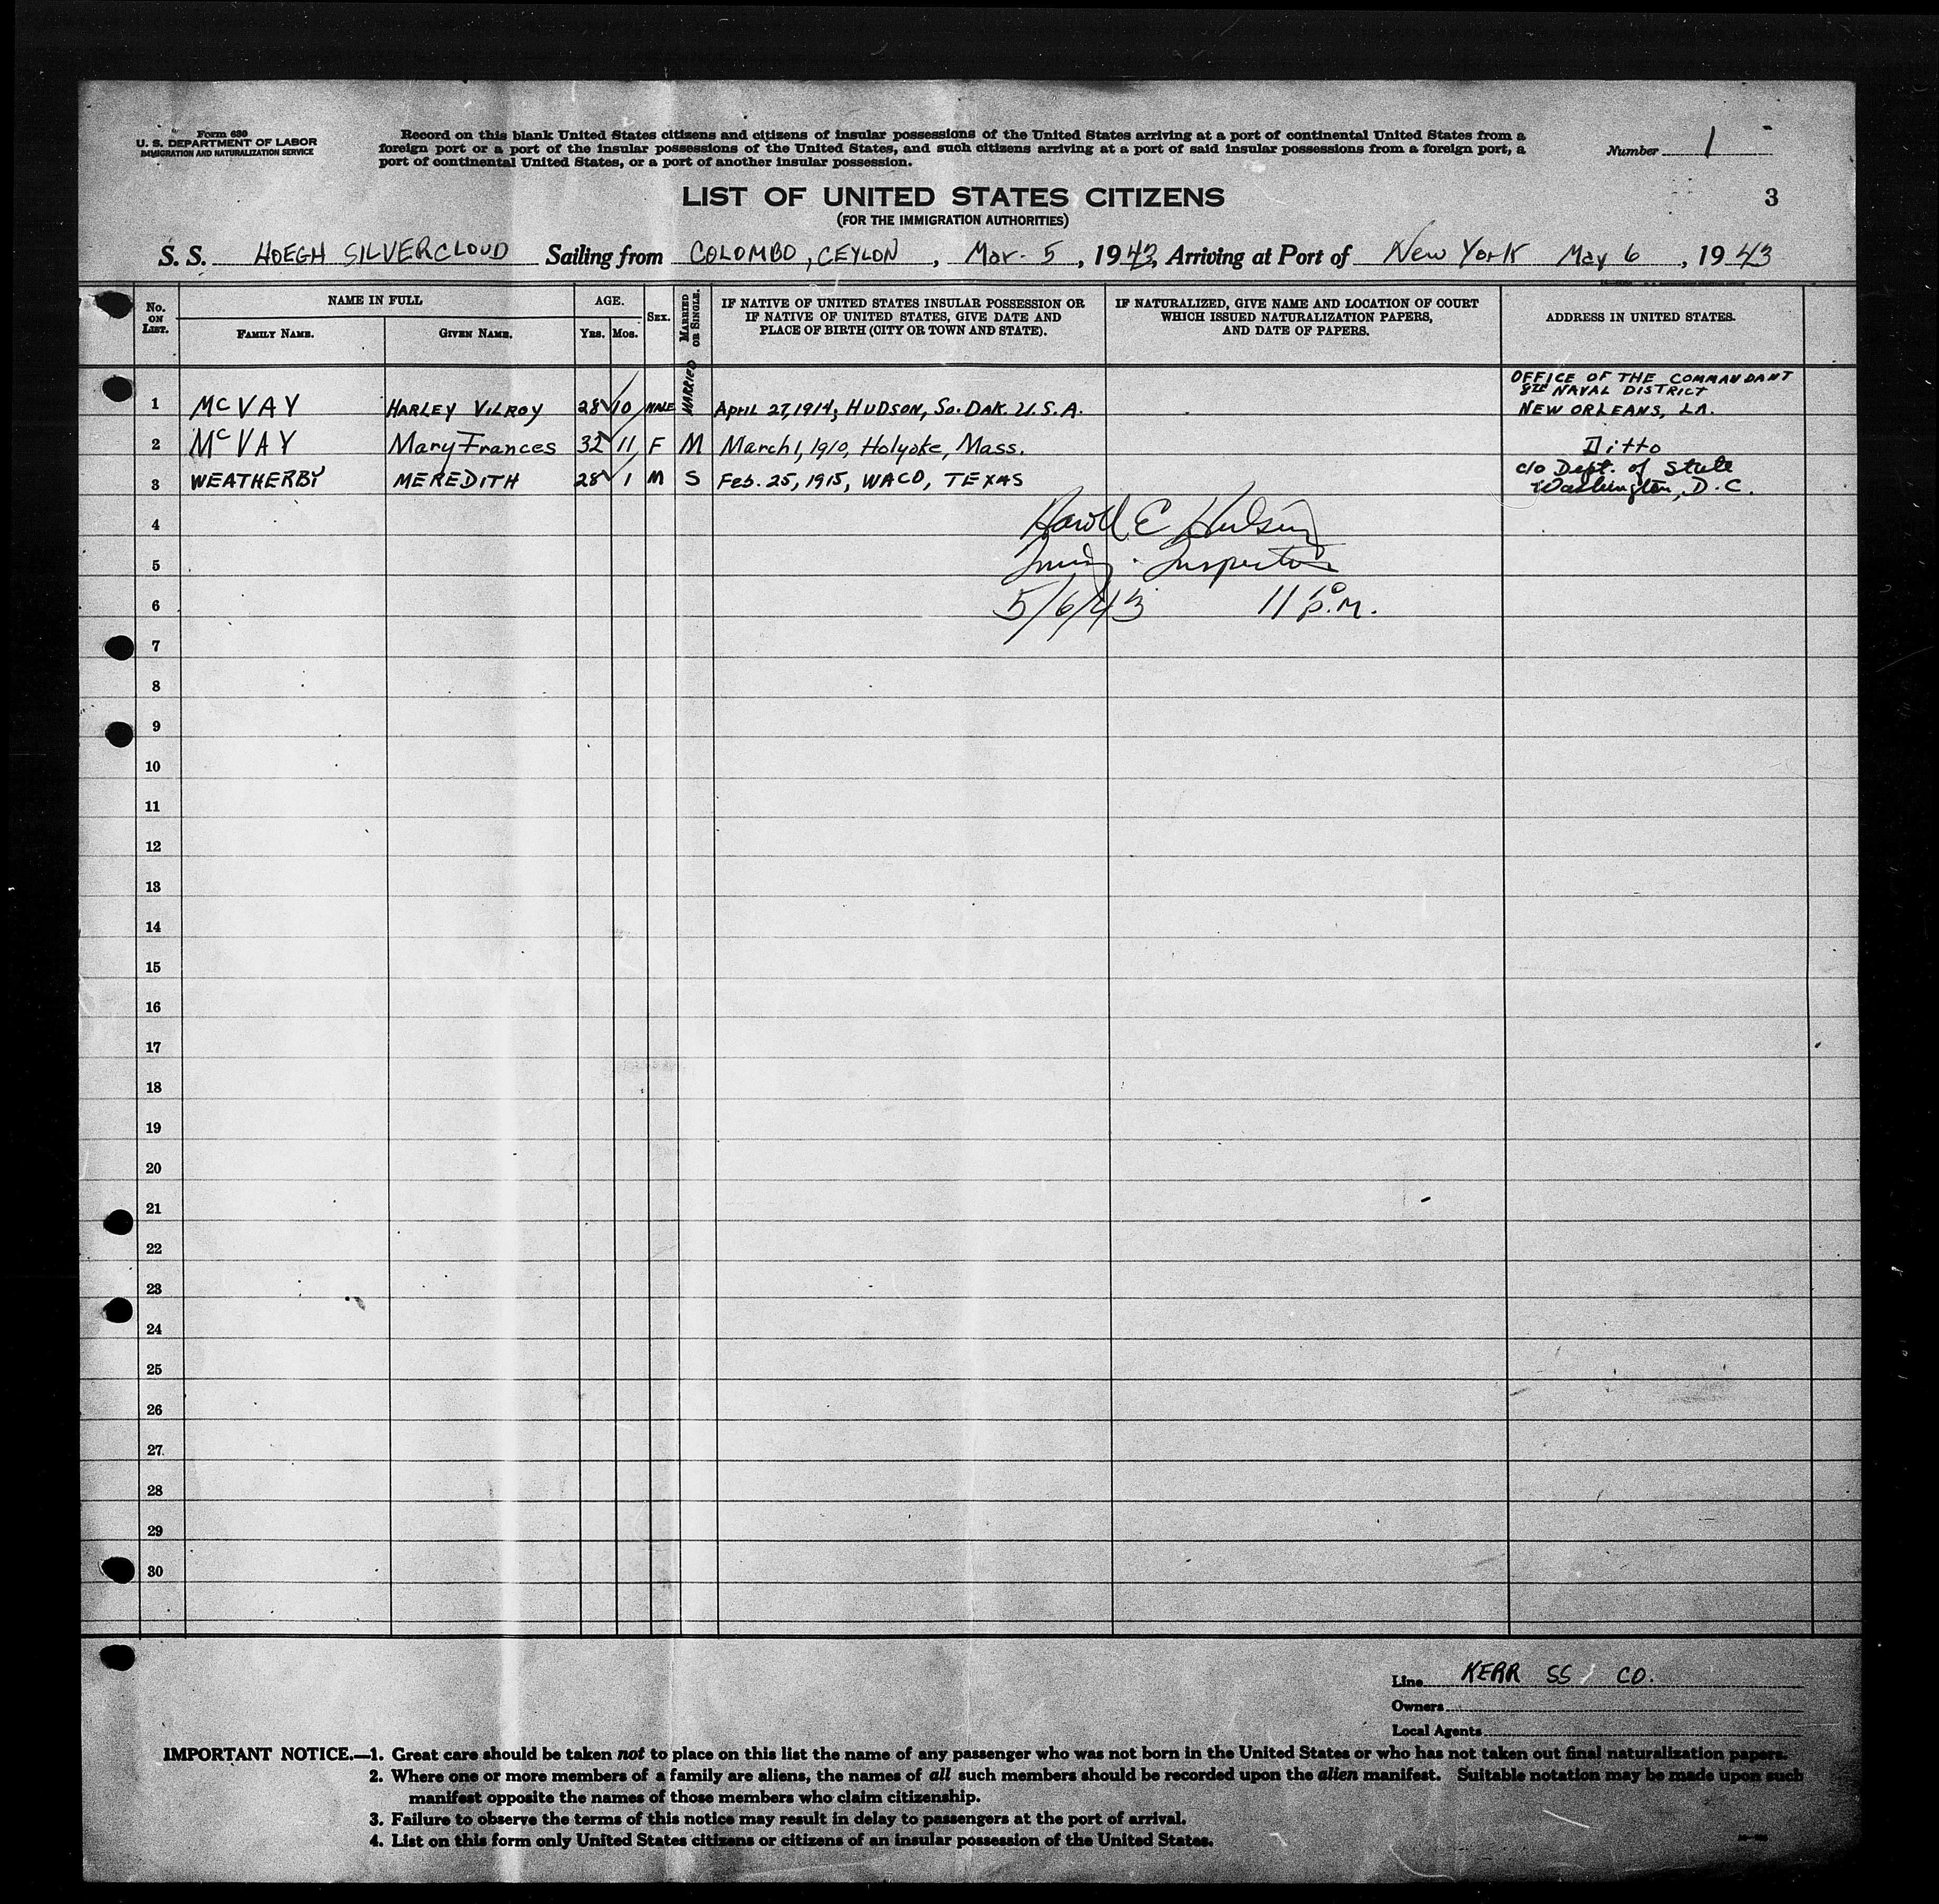 Form 630
U. S. DEPARTMENT OF LABOR
IMMIGRATION AND NATURALIZATION SERVICE
Record on this blank United States citizens and citizens of insular possessions of the United States arriving at a port of continental United States from a
foreign port or a port of the insular possessions of the United States, and such citizens arriving at a port of said insular possessions from a foreign port, a
port of continental United States, or a port of another insular possession.
Number 1
3
LIST OF UNITED STATES CITIZENS
(FOR THE IMMIGRATION AUTHORITIES)
S. S. HOEGH SILVERCLOUD Sailing from COLOMBO, CEYLON, Mar. 5, 1943, Arriving at Port of New York May 6, 1943
No. ON LIST.
NAME IN FULL
FAMILY NAME. GIVEN NAME.
AGE.
YRS. MOS.
SEX.
MARRIED OR SINGLE.
IF NATIVE OF UNITED STATES INSULAR POSSESSION OR
IF NATIVE OF UNITED STATES, GIVE DATE AND
PLACE OF BIRTH (CITY OR TOWN AND STATE).
IF NATURALIZED, GIVE NAME AND LOCATION OF COURT
WHICH ISSUED NATURALIZATION PAPERS,
AND DATE OF PAPERS.
ADDRESS IN UNITED STATES.
1 McVAY HARLEY VILROY 28 10 MALE MARRIED April 27, 1914, HUDSON, So. DAK. U.S.A. OFFICE OF THE COMMANDANT
8TH NAVAL DISTRICT
NEW ORLEANS, LA.
2 McVAY Mary Frances 32 11 F M March 1, 1910, Holyoke, Mass. Ditto
3 WEATHERBY MEREDITH 28 1 M S Feb. 25, 1915, WACO, TEXAS c/o Dept. of State
Washington, D.C.
4
Harold E
5
Immig. Inspector
6
5/6/43 11 p.m.
7
8
9
10
11
12
13
14
15
16
17
18
19
20
21
22
23
24
25
26
27
28
29
30
Line KERR SS CO.
Owners
Local Agents
IMPORTANT NOTICE.—1. Great care should be taken not to place on this list the name of any passenger who was not born in the United States or who has not taken out final naturalization papers.
2. Where one or more members of a family are aliens, the names of all such members should be recorded upon the alien manifest. Suitable notation may be made upon such
manifest opposite the names of those members who claim citizenship.
3. Failure to observe the terms of this notice may result in delay to passengers at the port of arrival.
4. List on this form only United States citizens or citizens of an insular possession of the United States.